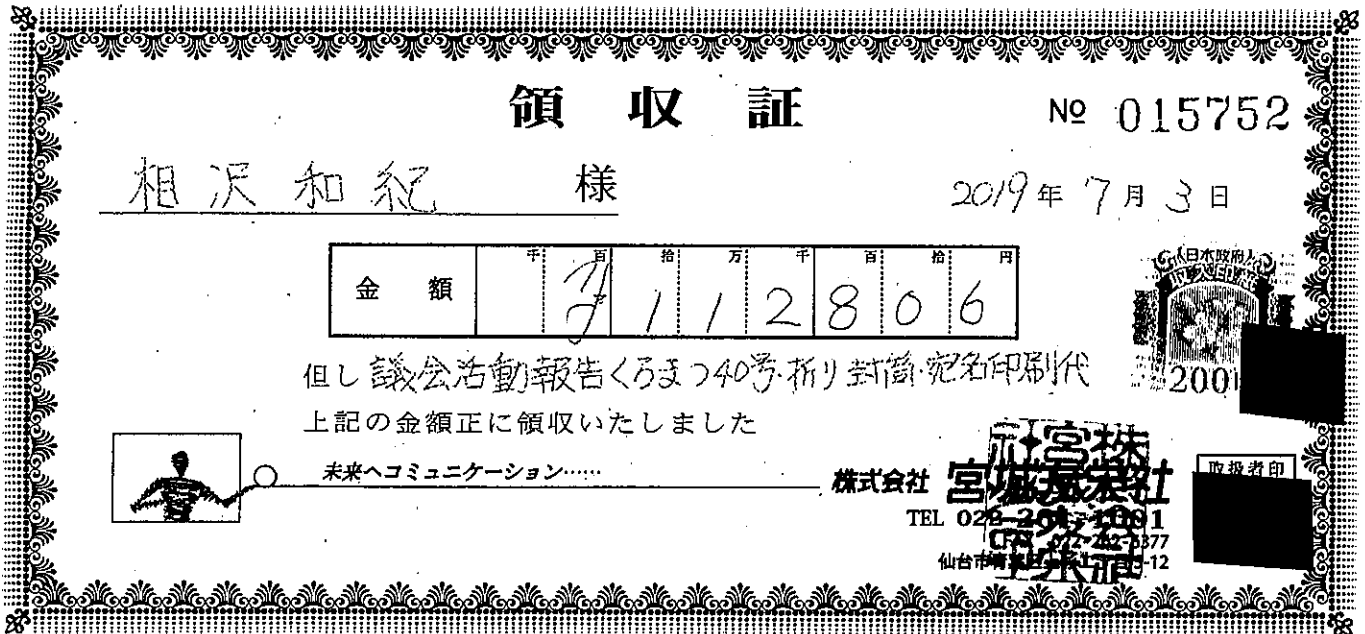 領収証
№ 015752
相沢和紀 様
2019年 7月 3日
金額
千 百 拾 万 千 百 拾 円
1 1 2 8 0 6
但し 議会活動報告くろまつ40号・折り封筒・宛名印刷代
上記の金額正に領収いたしました
日本政府
200
未来へコミュニケーション……
株式会社
取扱者印
TEL
仙台市
-12